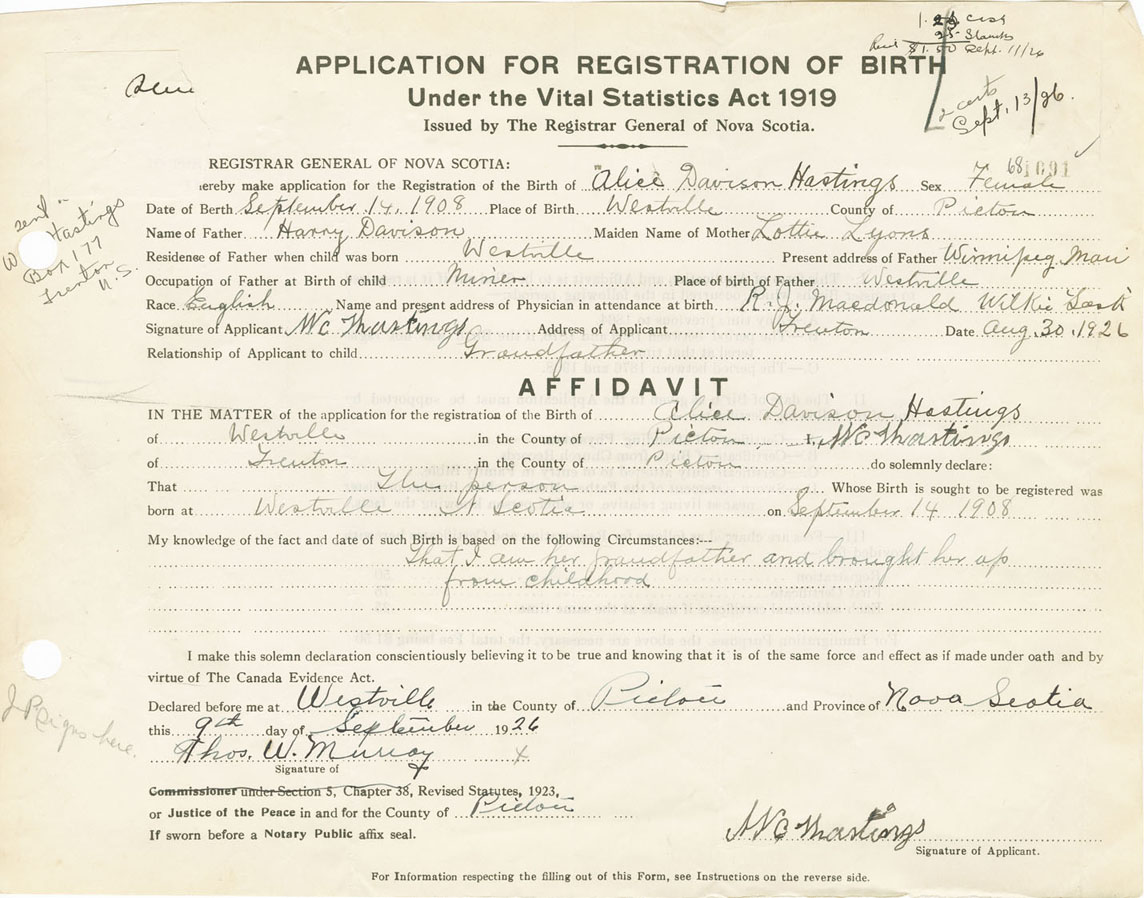 1.25 cash
25 Stamps
Recd $1.50 Sept. 11/26
APPLICATION FOR REGISTRATION OF BIRTH
Under the Vital Statistics Act 1919
Issued by The Registrar General of Nova Scotia.
2 certs
Sept. 13/26.
REGISTRAR GENERAL OF NOVA SCOTIA:
hereby make application for the Registration of the Birth of Alice Davison Hastings Sex Female
Date of Berth September 14, 1908 Place of Birth Westville County of Pictou
Name of Father Harry Davison Maiden Name of Mother Lottie Lyons
Residense of Father when child was born Westville Present address of Father Winnipeg Man
Occupation of Father at Birth of child Miner Place of birth of Father Westville
Race English Name and present address of Physician in attendance at birth R. J. Macdonald Wilkie Sask
Signature of Applicant Wc Hastings Address of Applicant Trenton Date Aug. 30, 1926
Relationship of Applicant to child Grandfather
sent
W Hastings
Box 177
Trenton
N. S.
AFFIDAVIT
IN THE MATTER of the application for the registration of the Birth of Alice Davison Hastings
of Westville in the County of Pictou I, Wc Hastings
of Trenton in the County of Pictou do solemnly declare:
That The person Whose Birth is sought to be registered was
born at Westville N Scotia on September 14 1908
My knowledge of the fact and date of such Birth is based on the following Circumstances:---
That I am her grandfather and brought her up
from childhood
I make this solemn declaration conscientiously believing it to be true and knowing that it is of the same force and effect as if made under oath and by
virtue of The Canada Evidence Act.
Declared before me at Westville in the County of Pictou and Province of Nova Scotia
this 9th day of September 1926
Thos. W. Murray x
Signature of
J P signs here.
Commissioner under Section 5, Chapter 38, Revised Statutes, 1923,
or Justice of the Peace in and for the County of Pictou
If sworn before a Notary Public affix seal.
Wc Hastings
Signature of Applicant.
For Information respecting the filling out of this Form, see Instructions on the reverse side.